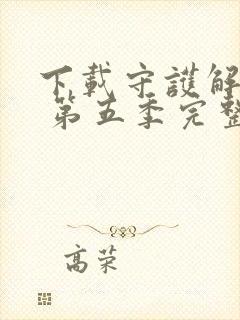 下載守護解
第五季完整
高荣